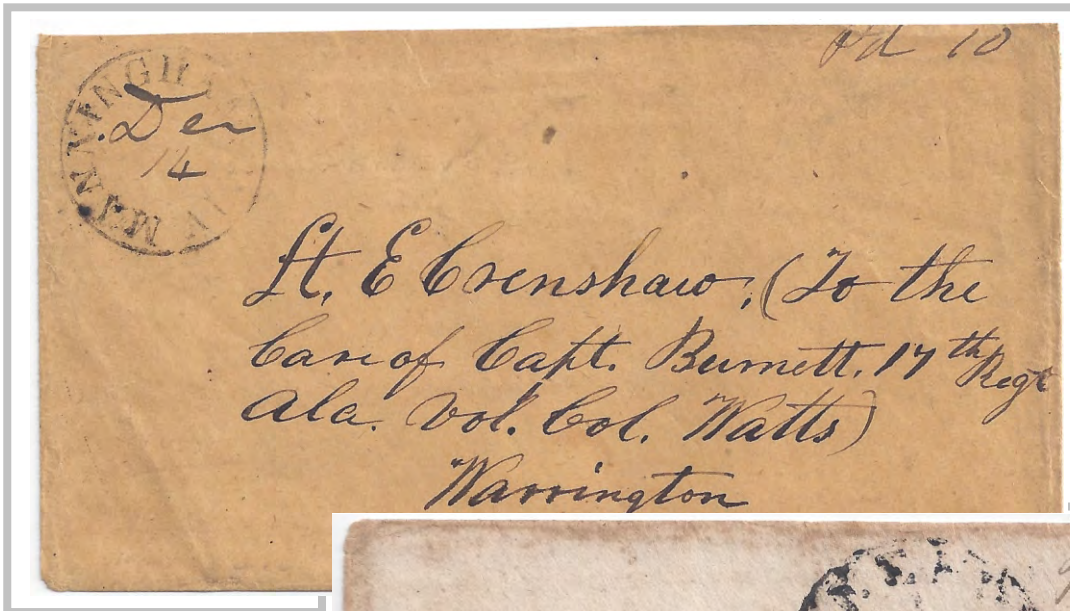 Pd 10
MANNINGHAM
Dec
14
Lt, E Crenshaw, (To the
Care of Capt. Burnett, 17th Regt
Ala. Vol. Col. Watts)
Warrington